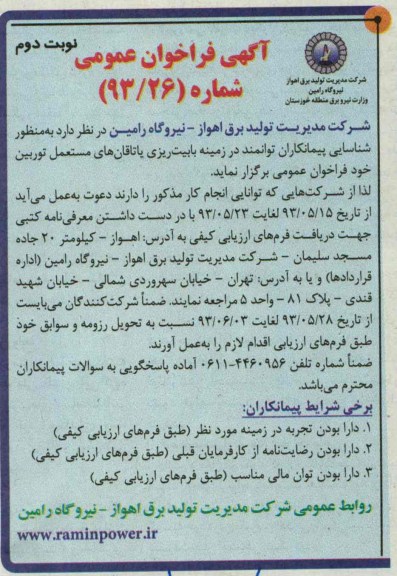 نوبت دوم
آگهی فراخوان عمومی
شماره (۹۳/۲۶)
شرکت مدیریت تولید برق اهواز
نیروگاه رامین
وزارت نیرو برق منطقه خوزستان
شرکت مدیریت تولید برق اهواز - نیروگاه رامین در نظر دارد به‌منظور
شناسایی پیمانکاران توانمند در زمینه بابیت‌ریزی یاتاقان‌های مستعمل توربین
خود فراخوان عمومی برگزار نماید.
لذا از شرکت‌هایی که توانایی انجام کار مذکور را دارند دعوت به‌عمل می‌آید
از تاریخ ۹۳/۰۵/۱۵ لغایت ۹۳/۰۵/۲۳ با در دست داشتن معرفی‌نامه کتبی
جهت دریافت فرم‌های ارزیابی کیفی به آدرس: اهواز - کیلومتر ۲۰ جاده
مسجد سلیمان - شرکت مدیریت تولید برق اهواز - نیروگاه رامین (اداره
قراردادها) و یا به آدرس: تهران - خیابان سهروردی شمالی - خیابان شهید
قندی - پلاک ۸۱ - واحد ۵ مراجعه نمایند. ضمناً شرکت‌کنندگان می‌بایست
از تاریخ ۹۳/۰۵/۲۸ لغایت ۹۳/۰۶/۰۳ نسبت به تحویل رزومه و سوابق خود
طبق فرم‌های ارزیابی اقدام لازم را به‌عمل آورند.
ضمناً شماره تلفن ۴۴۶۰۹۵۶-۰۶۱۱ آماده پاسخگویی به سوالات پیمانکاران
محترم می‌باشد.
برخی شرایط پیمانکاران:
۱. دارا بودن تجربه در زمینه مورد نظر (طبق فرم‌های ارزیابی کیفی)
۲. دارا بودن رضایت‌نامه از کارفرمایان قبلی (طبق فرم‌های ارزیابی کیفی)
۳. دارا بودن توان مالی مناسب (طبق فرم‌های ارزیابی کیفی)
روابط عمومی شرکت مدیریت تولید برق اهواز - نیروگاه رامین
www.raminpower.ir